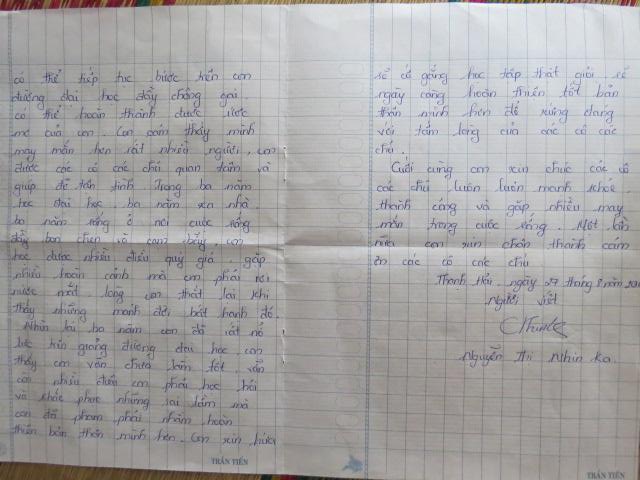 có thể tiếp tục bước trên con
đường đại học đầy chông gai.
có thể hoàn thành được ước
mơ của con. Con cảm thấy mình
may mắn hơn rất nhiều người, con
được các cô các chú quan tâm và
giúp đỡ tận tình. Trong ba năm
học đại học, ba năm xa nhà
ba năm sống ở nơi cuộc sống
đầy bon chen và cạm bẫy, con
học được nhiều điều quý giá, gặp
nhiều hoàn cảnh mà con phải rơi
nước mắt, lòng con thắt lại khi
thấy những mảnh đời bất hạnh đó.
Nhìn lại ba năm con đã rất nổ
lực trên giảng đường đại học, con
thấy con vẫn chưa làm tốt, vẫn
còn nhiều điều con phải học hỏi
và khắc phục những sai lầm mà
con đã phạm phải nhằm hoàn
thiện bản thân mình hơn. Con xin hứa
TRẦN TIẾN
sẽ cố gắng học tập thật giỏi, sẽ
ngày càng hoàn thiện tốt bản
thân mình hơn để xứng đáng
với tấm lòng của các cô các
chú.
Cuối cùng con xin chúc các cô
các chú luôn luôn mạnh khỏe,
thành công và gặp nhiều may
mắn trong cuộc sống. Một lần
nữa con xin chân thành cảm
ơn các cô các chú
Thanh Hải, ngày 27 tháng 8 năm
Người viết
Nguyễn Thị Nhin Ka
TRẦN TIẾN